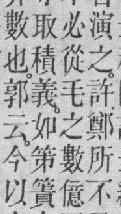 演之許鄭所不
必從毛之數億
取積義如第簀
數也郭云今以